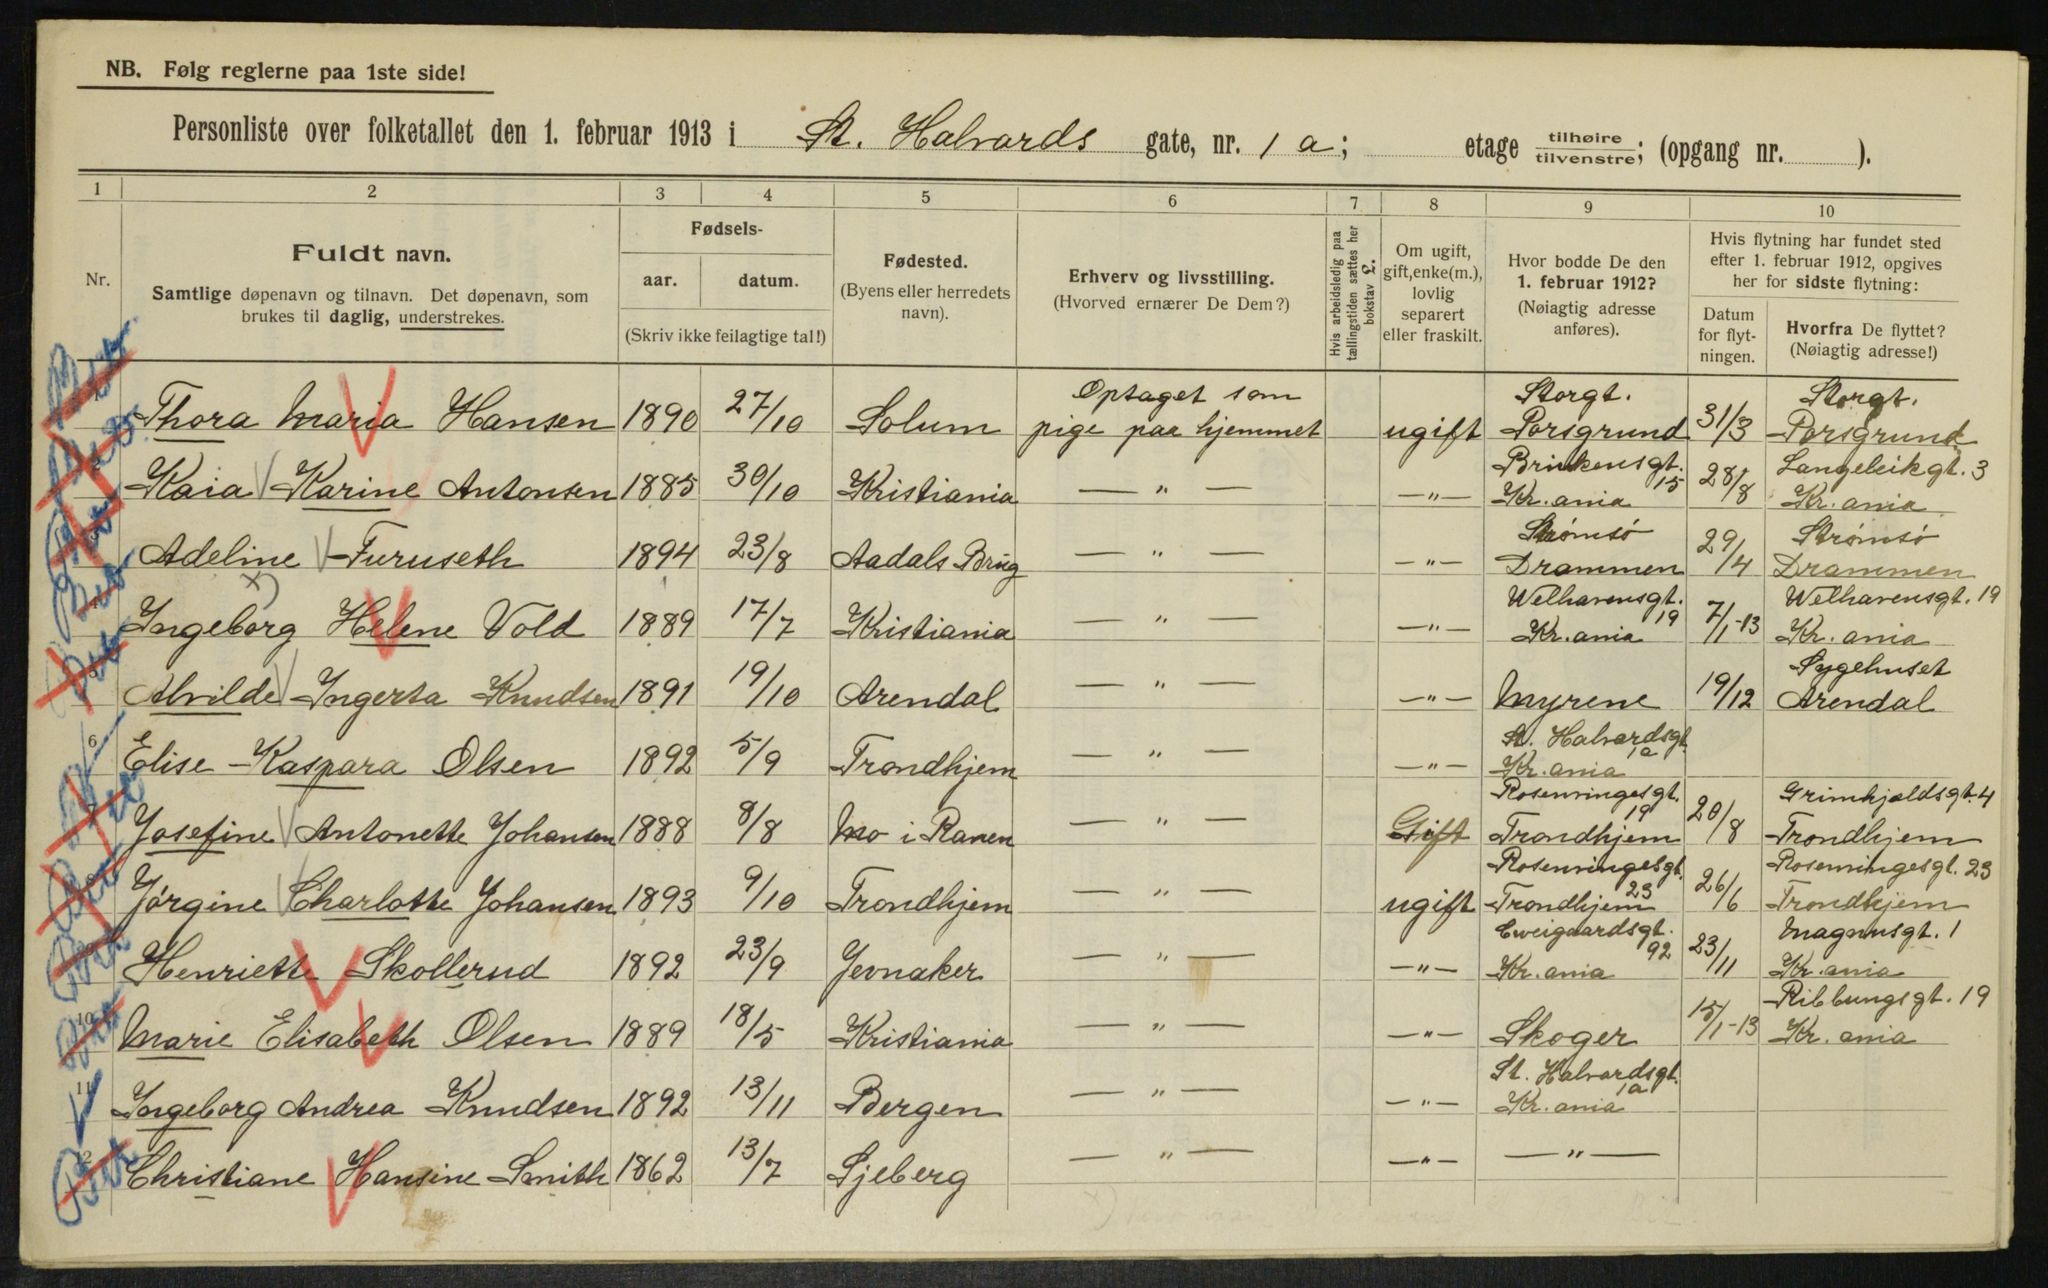 NB. Følg reglerne paa 1ste side!
Personliste over folketallet den 1. februar 1913 i St. Halvards gate, nr. 1 a; etage tilhøire tilvenstre; (opgang nr. ).
1 2 3 4 5 6 7 8 9 10
Nr.
Fuldt navn.
Samtlige døpenavn og tilnavn. Det døpenavn, som
brukes til daglig, understrekes.
Fødsels-
aar. datum.
(Skriv ikke feilagtige tal!)
Fødested.
(Byens eller herredets
navn).
Erhverv og livsstilling.
(Hvorved ernærer De Dem?)
Hvis arbeidsledig paa
tællingstiden sættes her
bokstav £.
Om ugift,
gift, enke(m.),
lovlig
separert
eller fraskilt.
Hvor bodde De den
1. februar 1912?
(Nøiagtig adresse
anføres).
Hvis flytning har fundet sted
efter 1. februar 1912, opgives
her for sidste flytning:
Datum
for flyt-
ningen.
Hvorfra De flyttet?
(Nøiagtig adresse!)
Optaget som Storgt. Storgt.
1 Thora Maria Hansen 1890 27/10 Solum pige paa hjemmet ugift Porsgrund 31/3 Porsgrund
Brinkensgt. 15 Langeleikgt. 3
2 Kaia Karine Antonsen 1885 30/10 Kristiania — " — — " — Kr. ania 28/8 Kr. ania
Strømsö Strømsö
Adeline Furuseth 1894 23/8 Aadals Brug — " — — " — Drammen 29/4 Drammen
x)
Welhavensgt. 19 Welhavensgt. 19
4 Ingeborg Helene Vold 1889 17/7 Kristiania — " — — " — Kr. ania 7/1-13 Kr. ania
Sygehuset
5 Alvilde Ingerta Knudsen 1891 19/10 Arendal — " — — " — Myrene 19/12 Arendal
St. Halvardsgt. 1a
6 Elise Kaspara Olsen 1892 5/9 Trondhjem — " — — " — Kr. ania
Rosenvingesgt. 19 Grimhjeldsgt. 4
7 Josefine Antonette Johansen 1888 8/8 Mo i Ranen — " — Gift Trondhjem 20/8 Trondhjem
Rosenvingesgt. 23 Rosenvingesgt. 23
8 Jørgine Charlotte Johansen 1893 9/10 Trondhjem — " — ugift Trondhjem 26/6 Trondhjem
Cweigaardsgt. 92 Magnusgt. 1
9 Henriette Skollerud 1892 23/9 Jevnaker — " — — " — Kr. ania 23/11 Kr. ania
Ribbungsgt. 19
10 Marie Elisabeth Olsen 1889 18/5 Kristiania — " — — " — Skoger 15/1-13 Kr. ania
St. Halvardsgt. 1a
11 Ingeborg Andrea Knudsen 1892 13/11 Bergen — " — — " — Kr. ania
12 Christiane Hansine Smith 1862 13/7 Sjeberg — " — — " — — " —